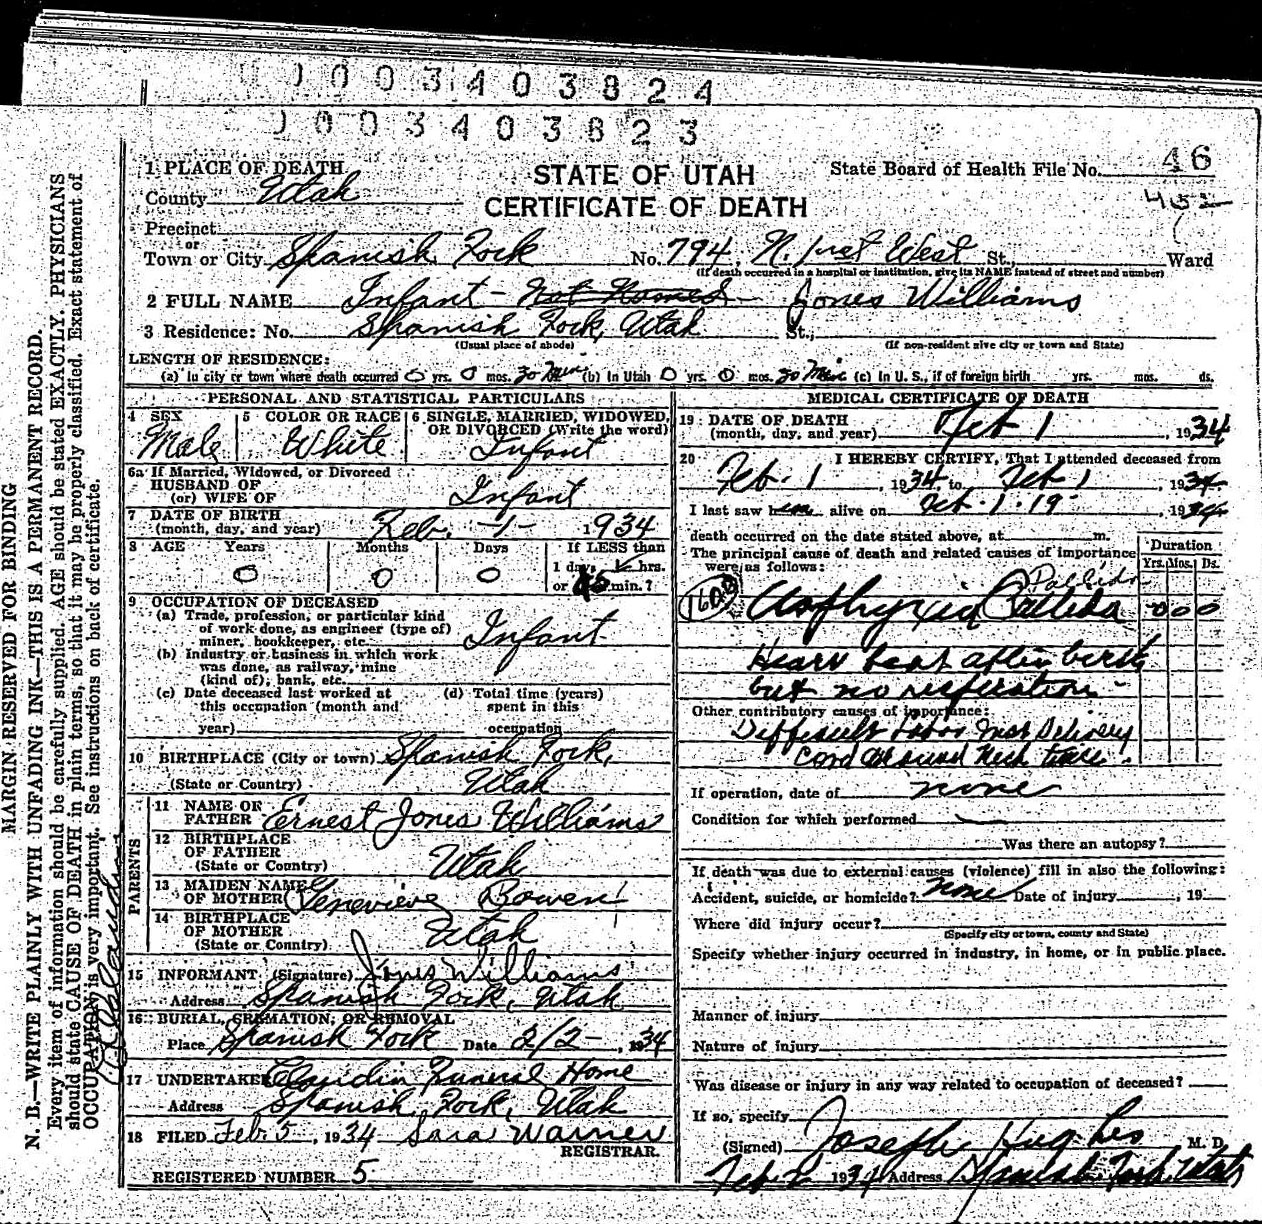 0003403824
0003403823
1 PLACE OF DEATH
STATE OF UTAH
State Board of Health File No. 46
County Utah
CERTIFICATE OF DEATH
452
Precinct
or
Town or City Spanish Fork No. 794 N. 1st West St., Ward
(If death occurred in a hospital or institution, give its NAME instead of street and number)
2 FULL NAME Infant - Not Named - Jones Williams
3 Residence: No. Spanish Fork, Utah St.,
(Usual place of abode) (If non-resident give city or town and State)
LENGTH OF RESIDENCE:
(a) In city or town where death occurred 0 yrs. 0 mos. 30 Min (b) In Utah 0 yrs. 0 mos. 30 Min (c) In U. S., if of foreign birth yrs. mos. ds.
PERSONAL AND STATISTICAL PARTICULARS
4 SEX 5 COLOR OR RACE 6 SINGLE, MARRIED, WIDOWED,
OR DIVORCED (Write the word)
Male White Infant
6a If Married, Widowed, or Divorced
HUSBAND OF
(or) WIFE OF Infant
7 DATE OF BIRTH
(month, day, and year) Feb. -1- 1934
8 AGE Years Months Days If LESS than
1 day, hrs.
0 0 0 or min.?
9 OCCUPATION OF DECEASED
(a) Trade, profession, or particular kind
of work done, as engineer (type of)
miner, bookkeeper, etc. Infant
(b) Industry or business in which work
was done, as railway, mine
(kind of), bank, etc.
(c) Date deceased last worked at (d) Total time (years)
this occupation (month and spent in this
year) occupation
10 BIRTHPLACE (City or town) Spanish Fork,
(State or Country) Utah
PARENTS
11 NAME OF
FATHER Ernest Jones Williams
12 BIRTHPLACE
OF FATHER
(State or Country) Utah
13 MAIDEN NAME
OF MOTHER Genevieve Bowen
14 BIRTHPLACE
OF MOTHER
(State or Country) Utah
15 INFORMANT (Signature) Jones Williams
Address Spanish Fork, Utah
16 BURIAL, CREMATION, OR REMOVAL
Place Spanish Fork Date 2/2- , 1934
17 UNDERTAKER Claudin Funeral Home
Address Spanish Fork, Utah
18 FILED Feb. 5, 1934 Sara Warner
REGISTRAR.
REGISTERED NUMBER 5
MEDICAL CERTIFICATE OF DEATH
19 DATE OF DEATH
(month, day, and year) Feb 1 , 1934
20 I HEREBY CERTIFY, That I attended deceased from
Feb. 1 , 1934 to Feb 1 , 1934
I last saw him alive on Feb. 1. 19 , 1934
death occurred on the date stated above, at m.
The principal cause of death and related causes of importance
were as follows: Duration
Yrs. Mos. Ds.
Pallida
Asphyxia Pallida 0 0 0
Heart beat after birth
but no respiration -
Other contributory causes of importance:
Difficult Labor Inst Delivery
Cord around Neck twice.
If operation, date of none
Condition for which performed
Was there an autopsy?
If death was due to external causes (violence) fill in also the following:
Accident, suicide, or homicide? none Date of injury , 19
Where did injury occur?
(Specify city or town, county and State)
Specify whether injury occurred in industry, in home, or in public place.
Manner of injury
Nature of injury
Was disease or injury in any way related to occupation of deceased?
If so, specify
(Signed) Joseph Hughes M. D.
Feb 2 1934 Address Spanish Fork, Utah
MARGIN RESERVED FOR BINDING
N. B.—WRITE PLAINLY WITH UNFADING INK—THIS IS A PERMANENT RECORD.
Every item of information should be carefully supplied. AGE should be stated EXACTLY. PHYSICIANS
should state CAUSE OF DEATH in plain terms, so that it may be properly classified. Exact statement of
OCCUPATION is very important. See instructions on back of certificate.